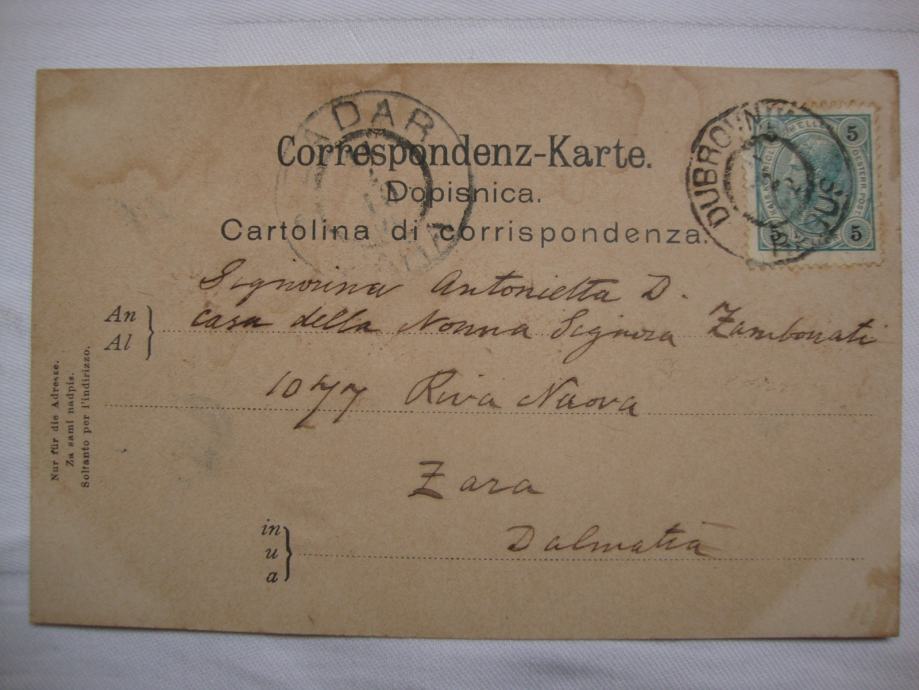 ADAR
Correspondenz-Karte.
Dopisnica.
Cartolina di corrispondenza.
DUBROVN
5 5
5 5
Signorina Antonietta D.
An
Al
casa della Nonna Signora Zambonati
1077 Riva Nuova
Zara
in
u
a
Dalmatia
Nur für die Adresse.
Za sami nadpis.
Soltanto per l'indirizzo.